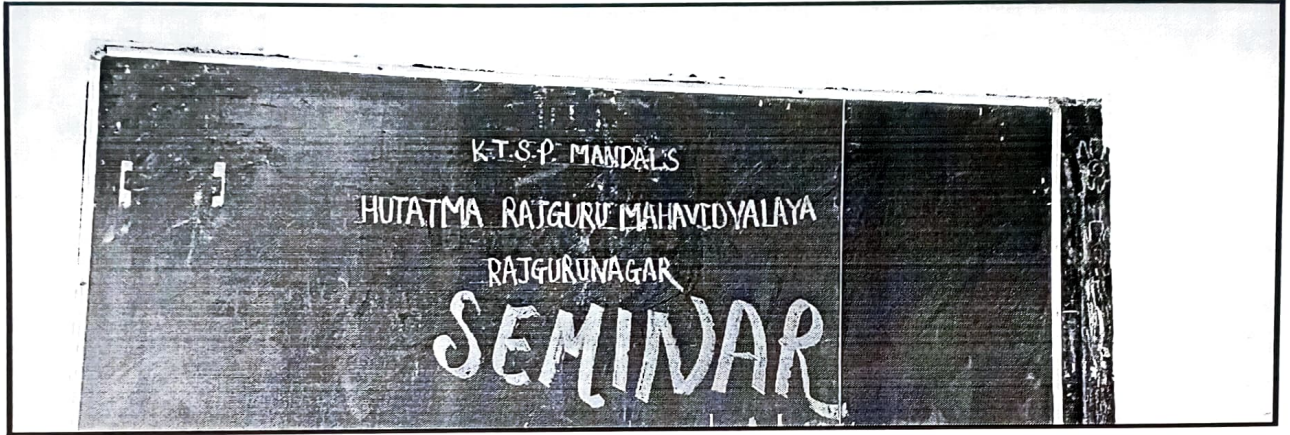 K.T.S.P. MANDAL'S
HUTATMA RAJGURU MAHAVIDYALAYA
RAJGURUNAGAR
SEMINAR